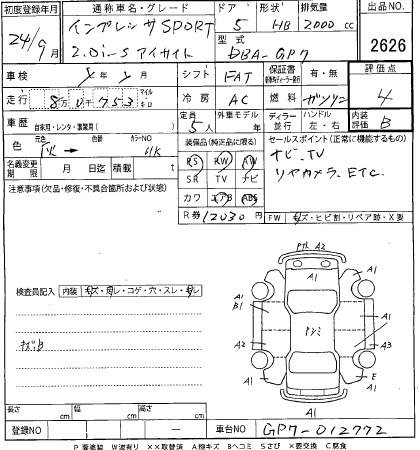 初度登録年月 通称車名・グレード ドア 形状 排気量 出品NO.
24/9月 インプレッサSPORT 5 HB 2000 cc
2.0i-S アイサイト 型式 DBA-GP7 2626
車検 年 月 シフト FAT 保証書 有・無 評価点
走行 8万0千753 マイル キロ 冷房 AC 燃料 ガソリン 4
車歴 自家用・レンタ・事業用( ) 定員 5人 外車モデル 年 ディーラー 並行 ハンドル 左・右 内装評価 B
色 元色 → 色替 カラーNO 61K 装備品(純正品に限る) セールスポイント(正常に機能するもの)
名義変更期限 月 日迄 積載 t PS PW AW ナビ、TV
SR TV ナビ リヤカメラ、ETC.
注意事項(欠品・修復・不具合箇所および状態) カワ エアB ABS
R券 12030円 FW キズ・ヒビ割・リペア跡・X要
検査員記入 内装 キズ・ヨゴレ・コゲ・穴・スレ・
キズB
A2 A1
A1 A1
A1 B1 A1
A2 A3
A1 E
A1
長さ cm 幅 cm 高さ cm
登録NO 車台NO GP7-012772
P 要塗装 W波有り ××取替済 A線キズ Bヘコミ Sさび ×要交換 C腐食